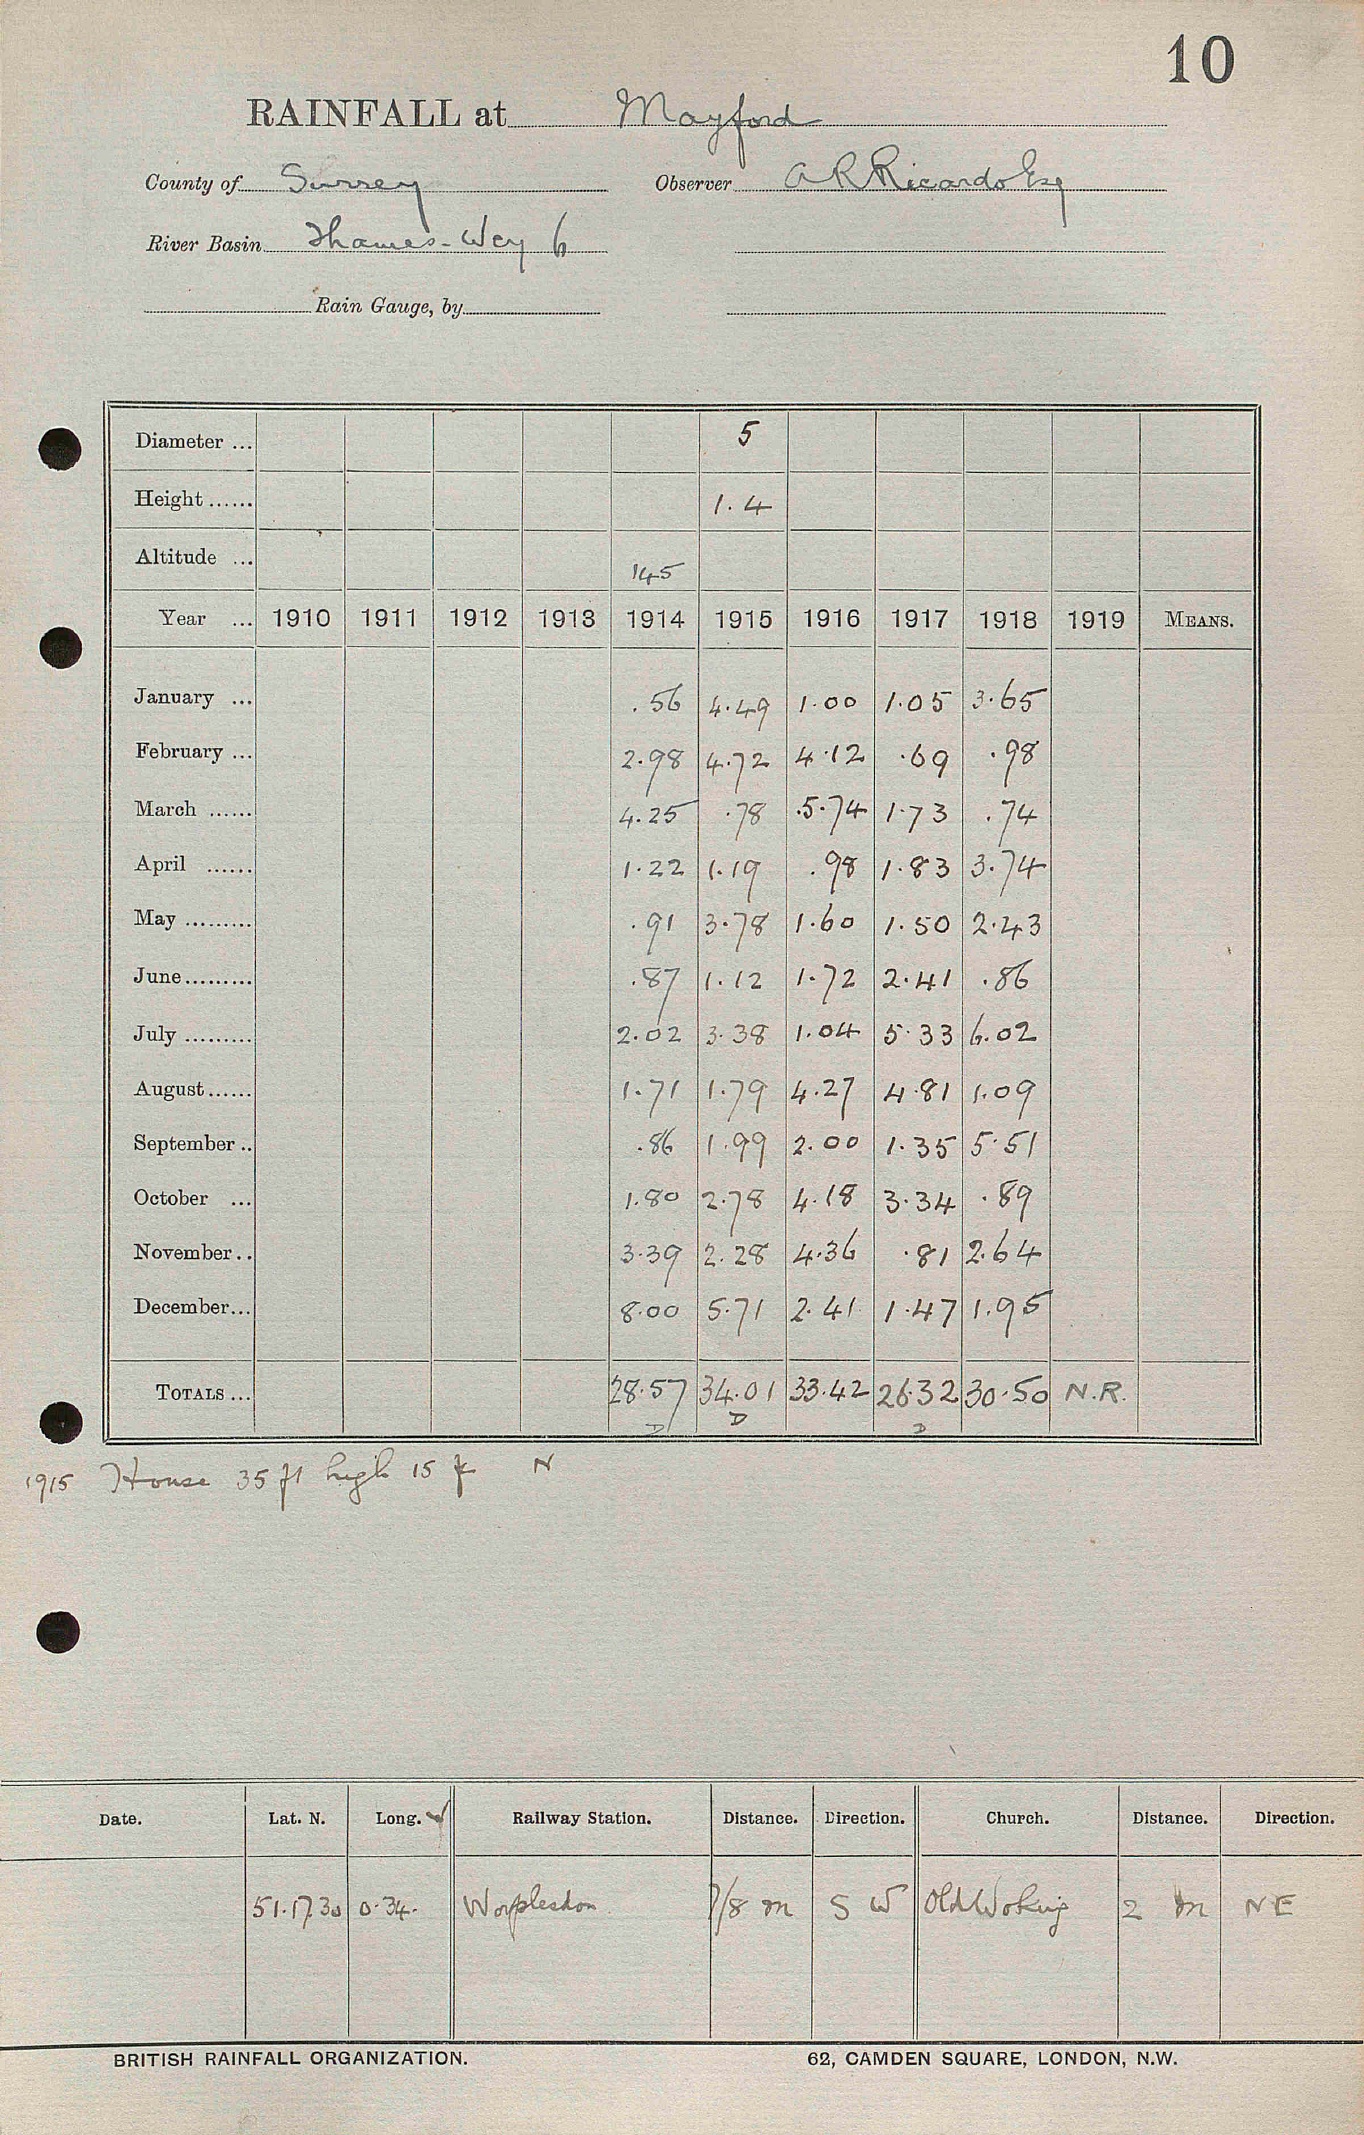 10
RAINFALL at Mayford
County of Surrey Observer A R Ricardo Esq
River Basin Thames-Wey 6
Rain Gauge, by
Diameter ... 5
Height ...... 1.4
Altitude ... 145
Year ... 1910 1911 1912 1913 1914 1915 1916 1917 1918 1919 MEANS.
January ... .56 4.49 1.00 1.05 3.65
February ... 2.98 4.72 4.12 .69 .98
March ...... 4.25 .78 .5.74 1.73 .74
April ...... 1.22 1.19 .98 1.83 3.74
May ......... .91 3.78 1.60 1.50 2.43
June ......... .87 1.12 1.72 2.41 .86
July ......... 2.02 3.38 1.04 5.33 6.02
August ...... 1.71 1.79 4.27 4.81 1.09
September .. .86 1.99 2.00 1.35 5.51
October ... 1.80 2.78 4.18 3.34 .89
November .. 3.39 2.28 4.36 .81 2.64
December ... 8.00 5.71 2.41 1.47 1.95
TOTALS ... 28.57 34.01 33.42 26.32 30.50 N.R.
D D D
1915 House 35 ft high 15 ft N
Date. Lat. N. Long. Railway Station. Distance. Direction. Church. Distance. Direction.
51.17.30 0.34. Worplesdon 7/8 m S W Old Woking 2 m N E
BRITISH RAINFALL ORGANIZATION. 62, CAMDEN SQUARE, LONDON, N.W.